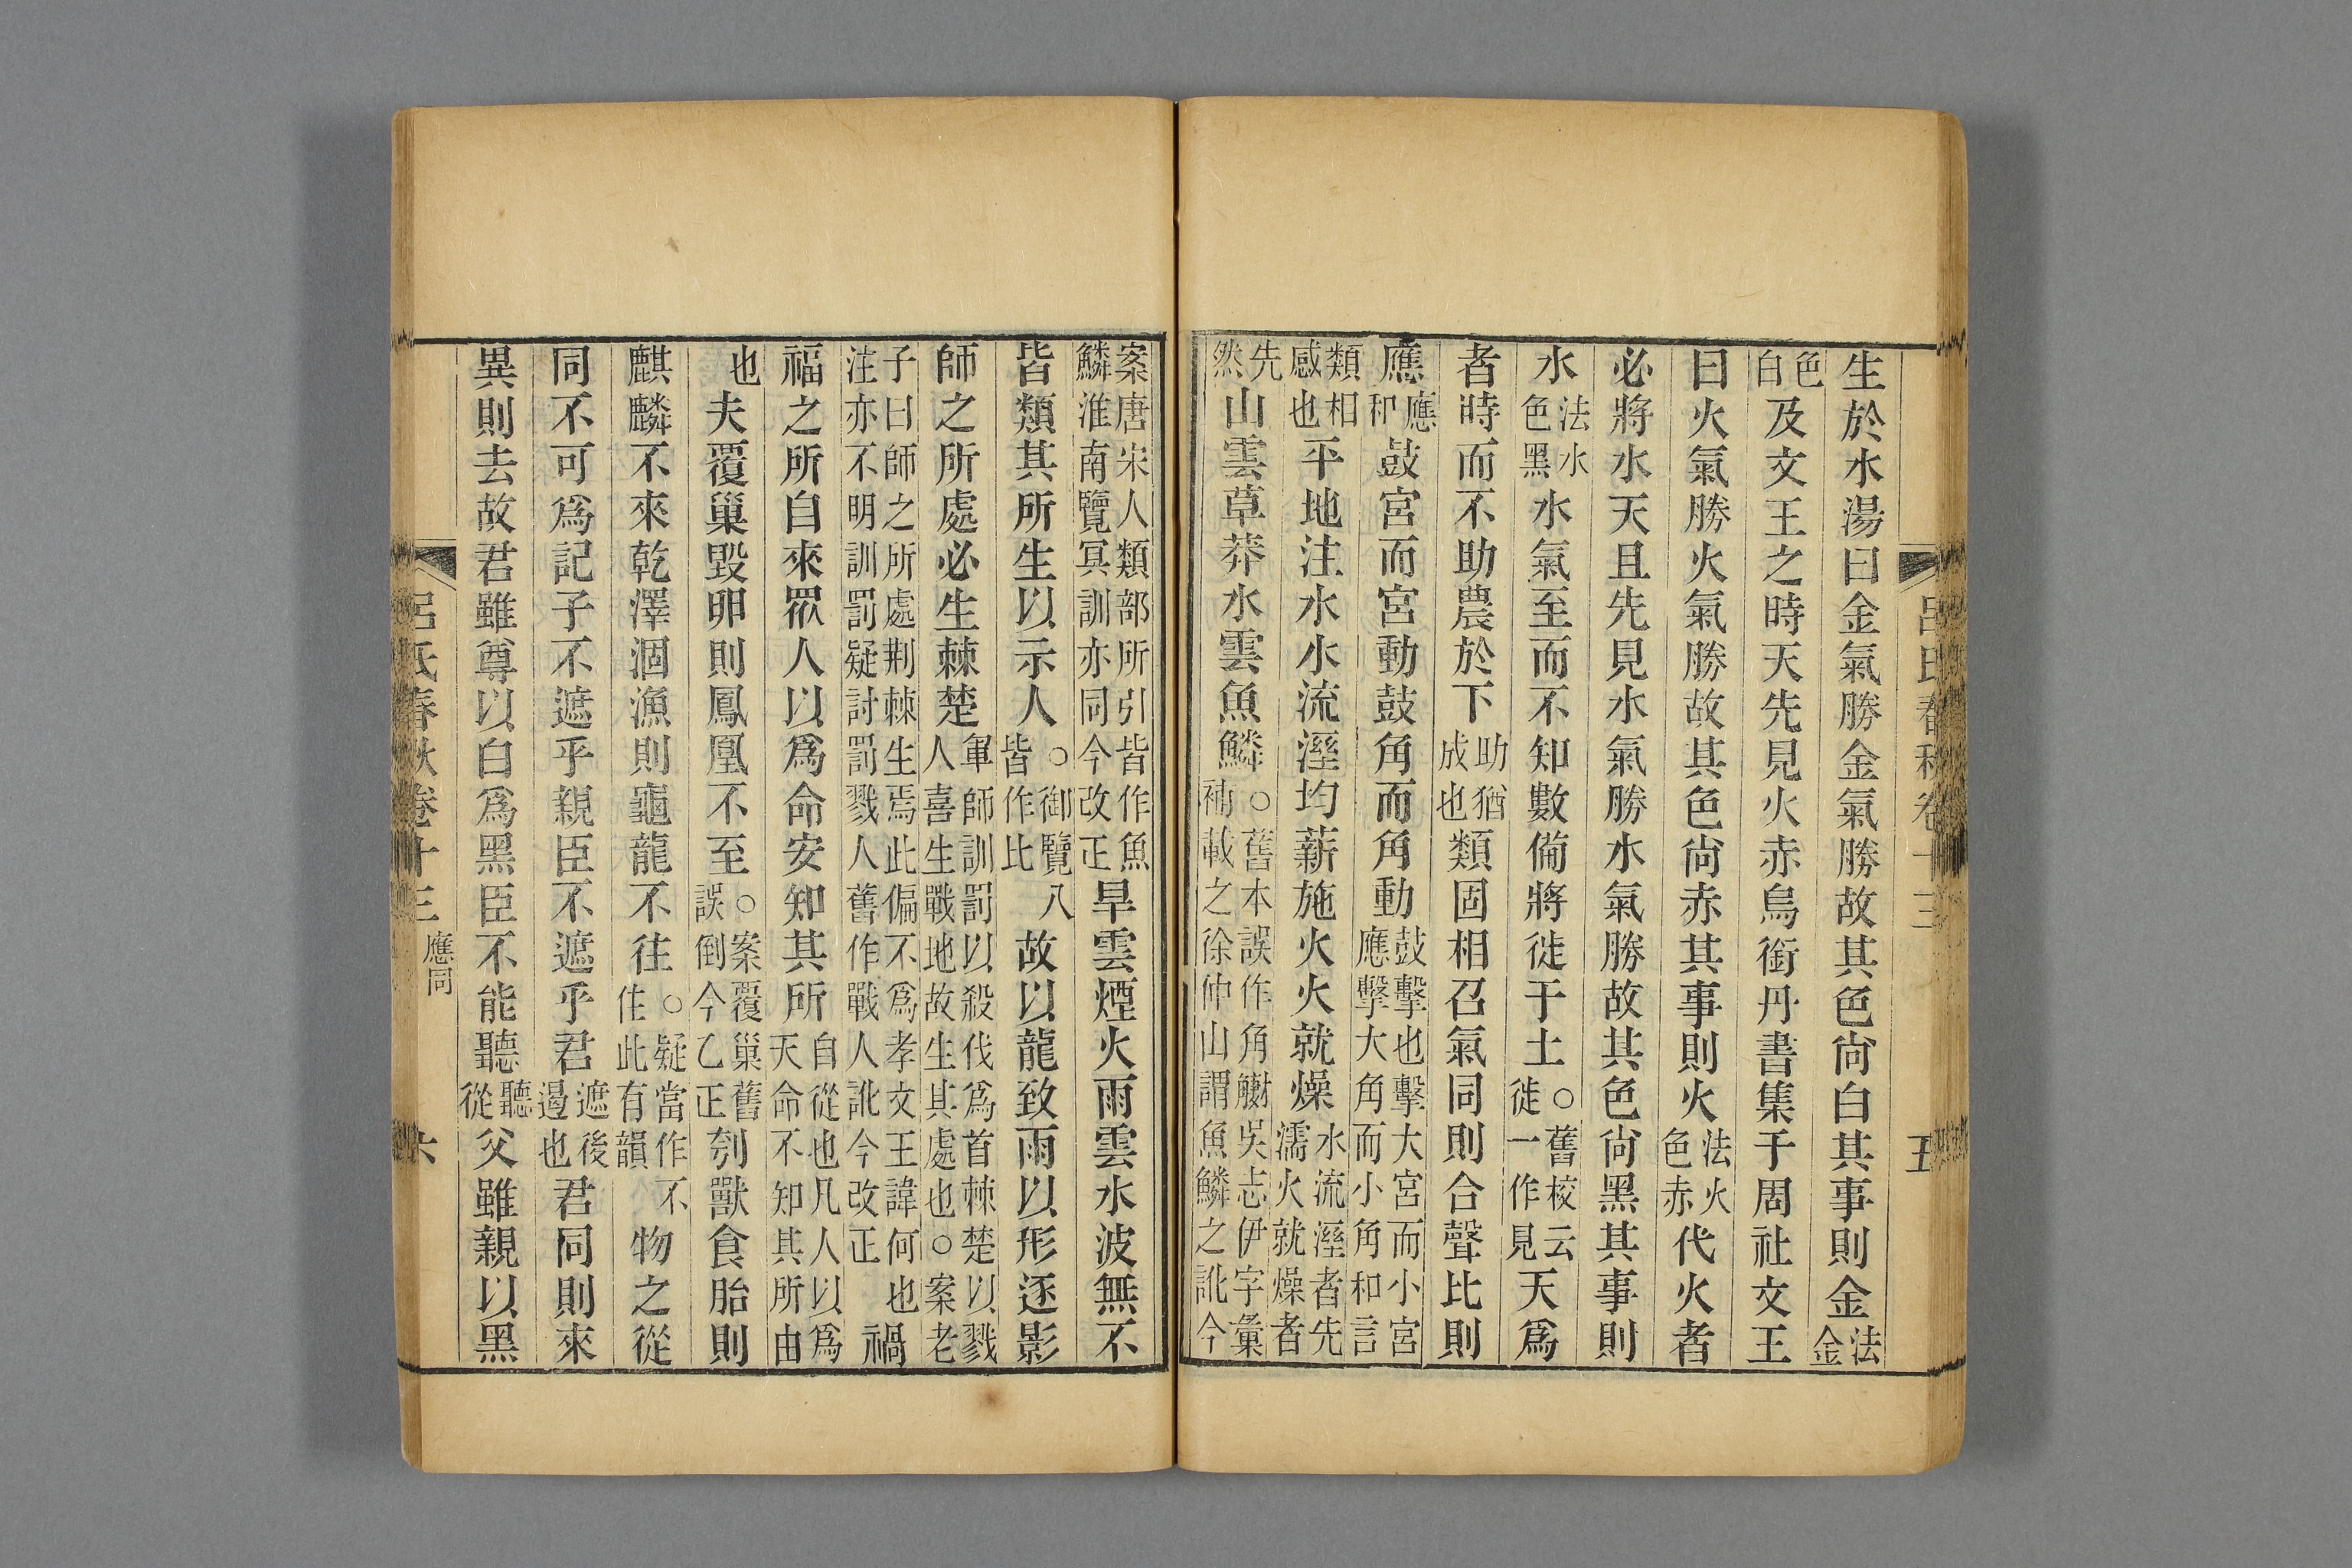 呂氏春秋卷十三 五
生於水湯曰金氣勝金氣勝故其色尙白其事則金法金
色白及文王之時天先見火赤烏銜丹書集于周社文王
曰火氣勝火氣勝故其色尙赤其事則火法火色赤代火者
必將水天且先見水氣勝水氣勝故其色尙黑其事則
水法水色黑水氣至而不知數備將徙于土○舊校云徙一作見天爲
者時而不助農於下助猶成也類固相召氣同則合聲比則
應應和鼓宮而宮動鼓角而角動鼓擊也擊大宮而小宮應擊大角而小角和言
類相感也平地注水水流溼均薪施火火就燥水流溼者先濡火就燥者
先然山雲草莽水雲魚鱗○舊本誤作角觿吳志伊字彙補載之徐仲山謂魚鱗之訛今
案唐宋人類部所引皆作魚鱗淮南覽冥訓亦同今改正旱雲煙火雨雲水波無不
皆類其所生以示人○御覽八皆作比故以龍致雨以形逐影
師之所處必生棘楚軍師訓罰以殺伐爲首棘楚以戮人喜生戰地故生其處也○案老
子曰師之所處荆棘生焉此偏不爲孝文王諱何也注亦不明訓罰疑討罰戮人舊作戰人訛今改正禍
福之所自來眾人以爲命安知其所自從也凡人以爲天命不知其所由
也夫覆巢毀卵則鳳凰不至○案覆巢舊誤倒今乙正刳獸食胎則
麒麟不來乾澤涸漁則龜龍不往○疑當作不隹此有韻物之從
同不可爲記子不遮乎親臣不遮乎君遮後遏也君同則來
異則去故君雖尊以白爲黑臣不能聽聽從父雖親以黑
呂氏春秋卷十三 應同 六